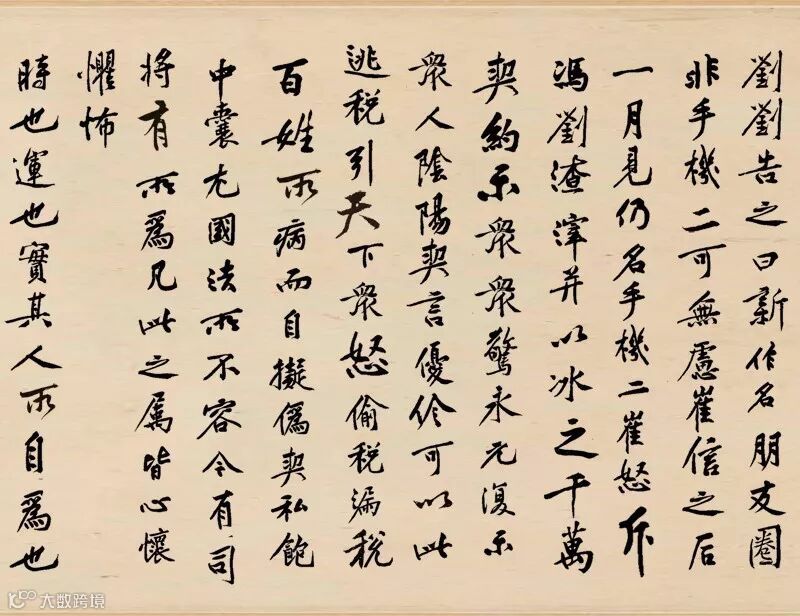 劉劉告之曰新作名朋友圈
非手機二可無慮崔信之后
一月見仍名手機二崔怒斥
馮劉渣滓并以冰之千萬
契約示衆衆驚永元復示
衆人陰陽契言優伶可以此
逃税引天下衆怒偷税漏税
百姓所病而自擬僞契私飽
中囊尤國法所不容今有司
將有所爲凡此之属皆心懷
懼怖
時也運也實其人所自爲也
大数跨境